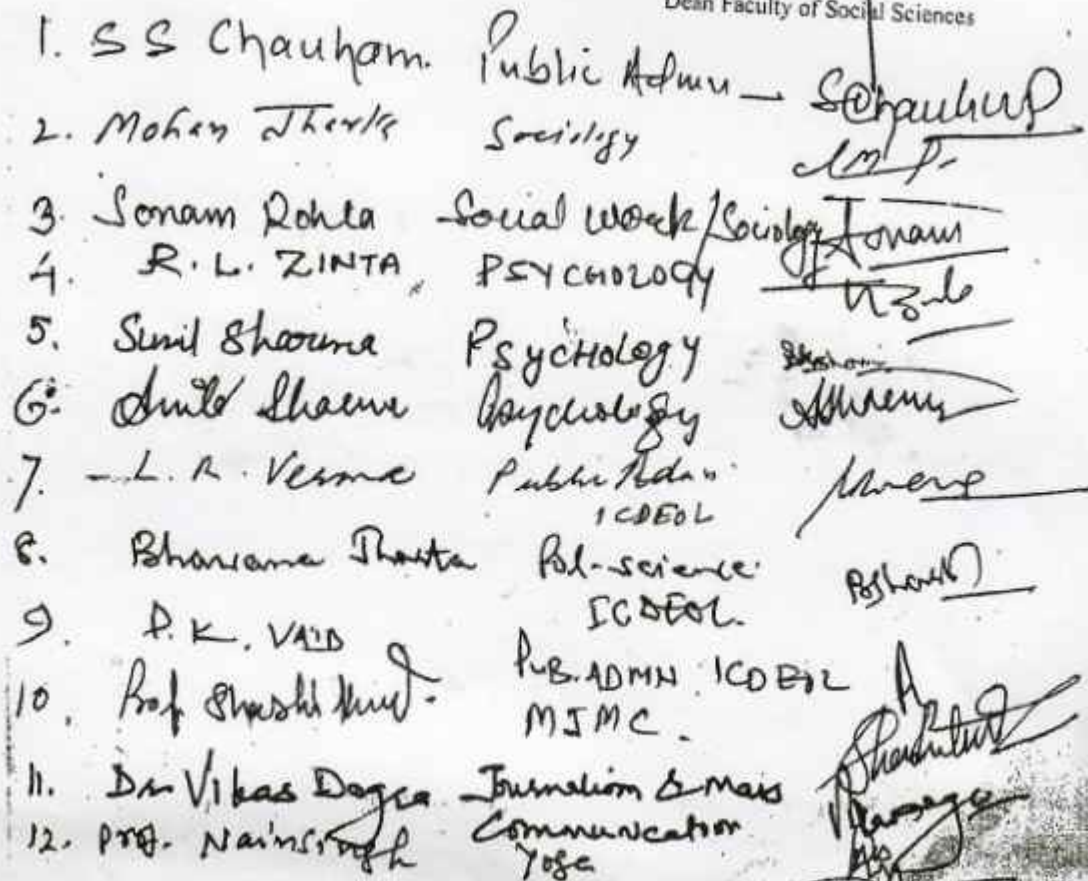 Dean Faculty of Social Sciences
1. S S Chauham. Public Admn — SChauhan
2. Mohan Jharta Sociology
3. Sonam Rohta Social Work/Sociology Sonam
4. R. L. ZINTA, PSYCHOLOGY
5. Sunil Sharma PSyCHology
6. Anita Sharma Psychology
7. L. R. Verma Public Admn
ICDEOL
8. Bhawana Jharta Pol-science
ICDEOL.
9. P. K. VAID PUB. ADMN ICDEOL
10. Prof Shashi Kant MJMC.
11. Dr Vikas Dogra Journalism & Mass
Communication
12. Prof. Nainsingh Yoga